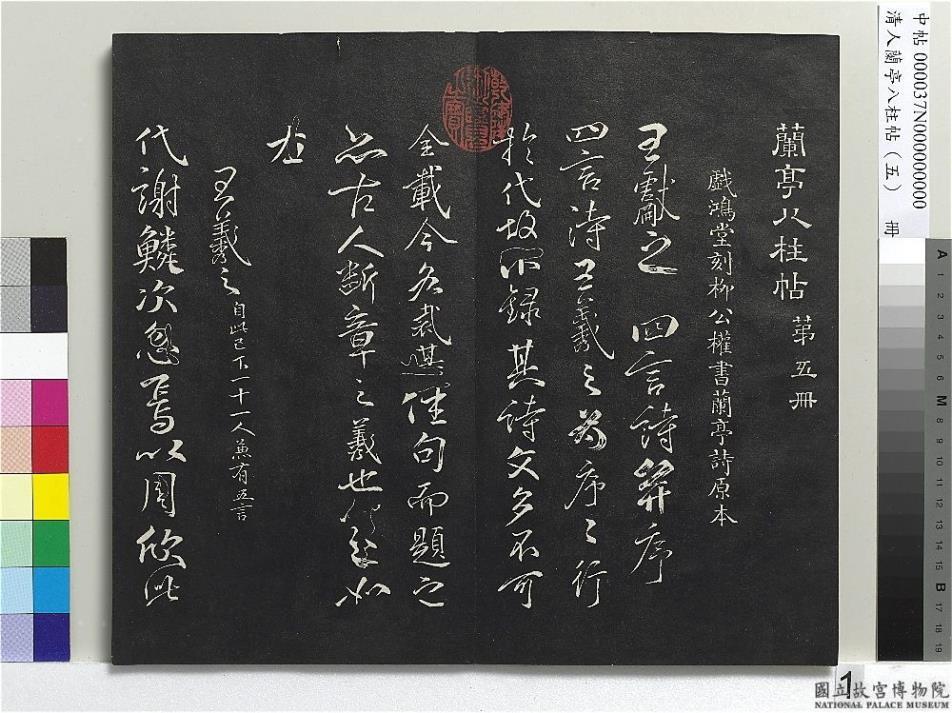 中帖000037N000000000
清人蘭亭八柱帖(五) 冊
蘭亭八柱帖 第五冊
戲鴻堂刻柳公權書蘭亭詩原本
王獻之 四言詩并序
四言詩王羲之為序序行
於代故不錄其詩文多不可
全載今各裁其佳句而題之
亦古人斷章之義也
左
王羲之 自此已下一十一人兼有五言
代謝鱗次忽焉以周欣此
A 1 2 3 4 5 6 M 8 9 10 11 12 13 14 15 B 17 18 19
1
國立故宮博物院
NATIONAL PALACE MUSEUM